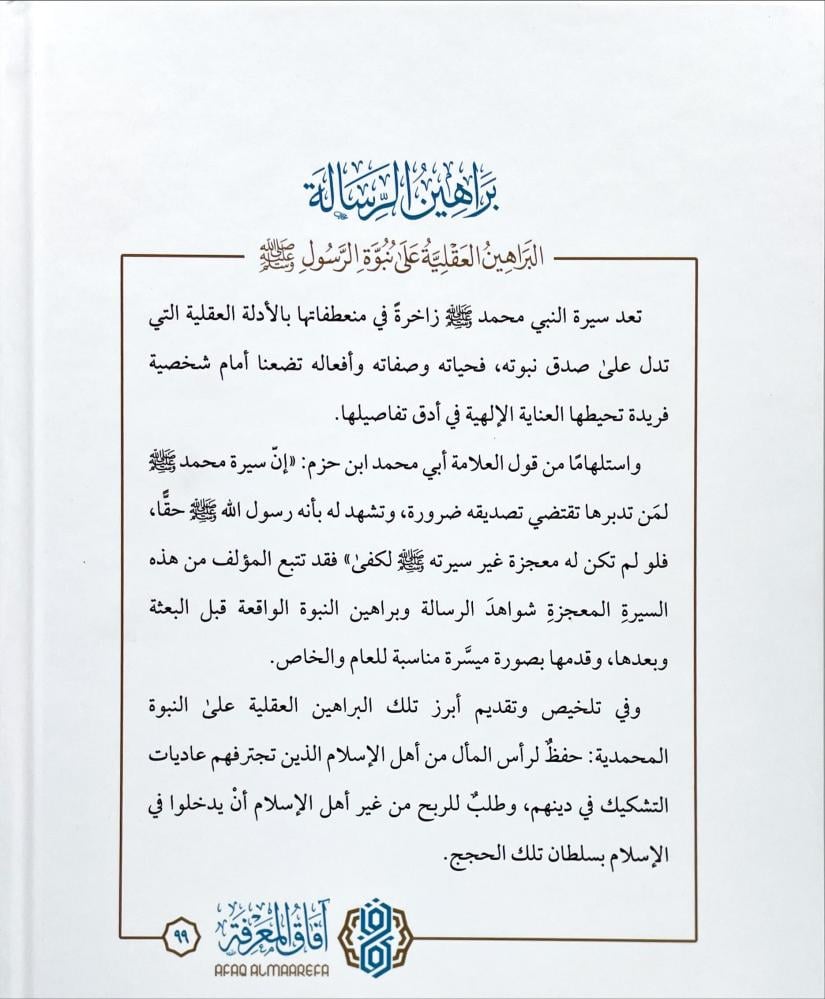 بَرَاهِينُ الرِّسَالَةِ
البَرَاهِينُ العَقْلِيَّةُ عَلَىٰ نُبُوَّةِ الرَّسُولِ ﷺ
تعد سيرة النبي محمد ﷺ زاخرةً في منعطفاتها بالأدلة العقلية التي
تدل علىٰ صدق نبوته، فحياته وصفاته وأفعاله تضعنا أمام شخصية
فريدة تحيطها العناية الإلهية في أدق تفاصيلها.
واستلهامًا من قول العلامة أبي محمد ابن حزم: «إنّ سيرة محمد ﷺ
لمَن تدبرها تقتضي تصديقه ضرورة، وتشهد له بأنه رسول الله ﷺ حقًّا،
فلو لم تكن له معجزة غير سيرته ﷺ لكفىٰ» فقد تتبع المؤلف من هذه
السيرةِ المعجزةِ شواهدَ الرسالة وبراهين النبوة الواقعة قبل البعثة
وبعدها، وقدمها بصورة ميسَّرة مناسبة للعام والخاص.
وفي تلخيص وتقديم أبرز تلك البراهين العقلية علىٰ النبوة
المحمدية: حفظٌ لرأس المأل من أهل الإسلام الذين تجترفهم عاديات
التشكيك في دينهم، وطلبٌ للربح من غير أهل الإسلام أنْ يدخلوا في
الإسلام بسلطان تلك الحجج.
آفَاقُ المَعْرِفَة
AFAQ ALMAAREFA
٩٩